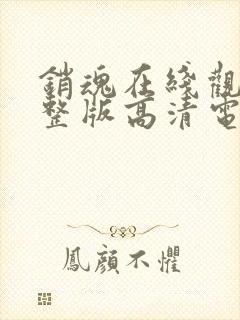 銷魂在綫觀
整版高清電
鳳顏不懼